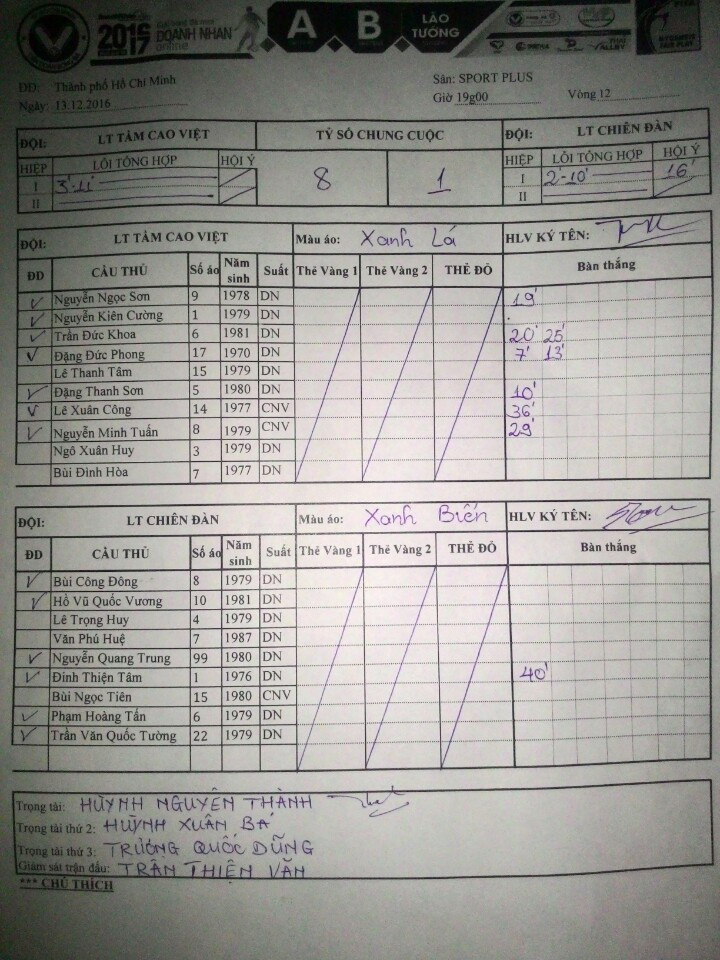 2016 2017 DOANH NHAN online A B LÃO TƯỚNG
ĐĐ: Thành phố Hồ Chí Minh Sân: SPORT PLUS
Ngày: 13.12.2016 Giờ 19g00 Vòng 12
ĐỘI: LT TẦM CAO VIỆT TỶ SỐ CHUNG CUỘC ĐỘI: LT CHIÊN ĐÀN
HIỆP LỖI TỔNG HỢP HỘI Ý 8 1 HIỆP LỖI TỔNG HỢP HỘI Ý
I 3'-11' I 2'-10' 16'
II II
ĐỘI: LT TẦM CAO VIỆT Màu áo: Xanh Lá HLV KÝ TÊN:
ĐD CẦU THỦ Số áo Năm sinh Suất Thẻ Vàng 1 Thẻ Vàng 2 THẺ ĐỎ Bàn thắng
✓ Nguyễn Ngọc Sơn 9 1978 DN 19'
✓ Nguyễn Kiên Cường 1 1979 DN
✓ Trần Đức Khoa 6 1981 DN 20' 25'
✓ Đặng Đức Phong 17 1970 DN 7' 13'
Lê Thanh Tâm 15 1979 DN
✓ Đặng Thanh Sơn 5 1980 DN 10'
✓ Lê Xuân Công 14 1977 CNV 36'
✓ Nguyễn Minh Tuấn 8 1979 CNV 29'
Ngô Xuân Huy 3 1979 DN
Bùi Đình Hòa 7 1977 DN
ĐỘI: LT CHIÊN ĐÀN Màu áo: Xanh Biển HLV KÝ TÊN:
ĐD CẦU THỦ Số áo Năm sinh Suất Thẻ Vàng 1 Thẻ Vàng 2 THẺ ĐỎ Bàn thắng
✓ Bùi Công Đông 8 1979 DN
✓ Hồ Vũ Quốc Vương 10 1981 DN
Lê Trọng Huy 4 1979 DN
Văn Phú Huệ 7 1987 DN
✓ Nguyễn Quang Trung 99 1980 DN
✓ Đinh Thiện Tâm 1 1976 DN 40'
Bùi Ngọc Tiên 15 1980 CNV
✓ Phạm Hoàng Tấn 6 1979 DN
✓ Trần Văn Quốc Tường 22 1979 DN
Trọng tài: HUỲNH NGUYÊN THÀNH
Trọng tài thứ 2: HUỲNH XUÂN BÁ
Trọng tài thứ 3: TRƯƠNG QUỐC DŨNG
Giám sát trận đấu: TRẦN THIỆN VĂN
*** CHÚ THÍCH